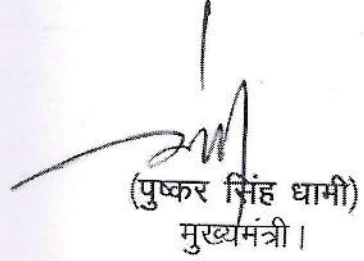 (पुष्कर सिंह धामी)
मुख्यमंत्री।